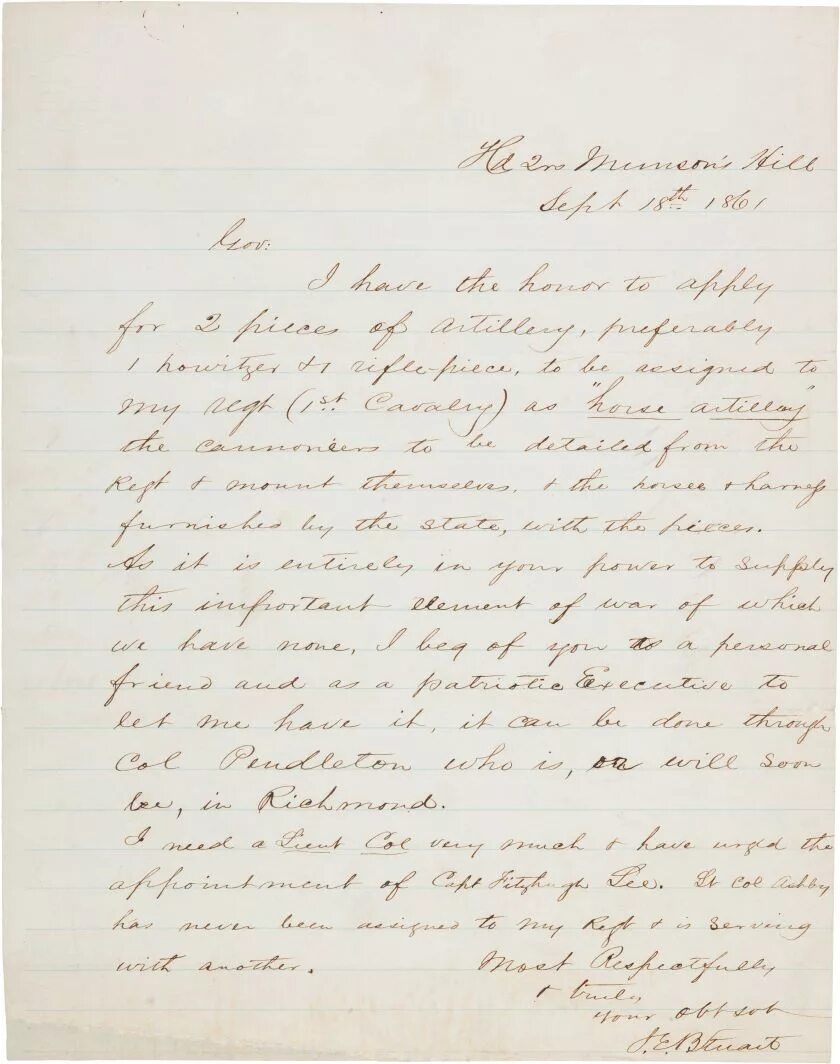 Hd Qrs Munson's Hill
Sept 18th 1861
Gov:
I have the honor to apply
for 2 pieces of artillery, preferably
1 howitzer & 1 rifle-piece, to be assigned to
my regt (1st Cavalry) as "horse artillery"
the cannoneers to be detailed from the
Regt & mount themselves, & the horses & harness
furnished by the state, with the pieces.
As it is entirely in your power to supply
this important element of war of which
we have none, I beg of you as a personal
friend and as a patriotic Executive to
let me have it, it can be done through
Col Pendleton who is, or will soon
be, in Richmond.
I need a Lieut Col very much & have urged the
appointment of Capt Fitzhugh Lee. Lt Col Ashby
has never been assigned to my Regt & is serving
with another. Most Respectfully
& truly
your obt svt
J.E.B Stuart